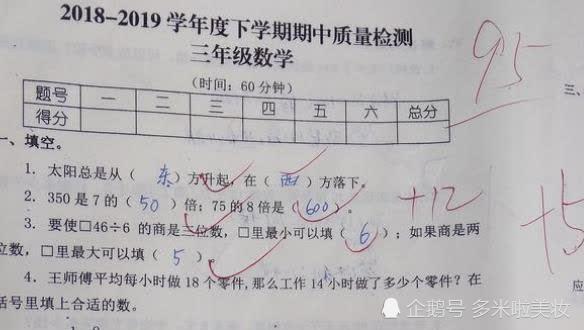 2018-2019学年度下学期期中质量检测
三年级数学
(时间: 60分钟)
95
题号 一 二 三 四 五 六 总分
得分
三、
一、填空。
1. 太阳总是从(东)方升起, 在(西)方落下。
2. 350是7的(50)倍; 75的8倍是(600)。
+12
+5
3. 要使□46÷6 的商是三位数, □里最小可以填(6); 如果商是两
位数, □里最大可以填(5)。
4. 王师傅平均每小时做18个零件, 那么工作14小时做了多少个零件? 在
括号里填上合适的数。
应
企鹅号 多米啦美妆